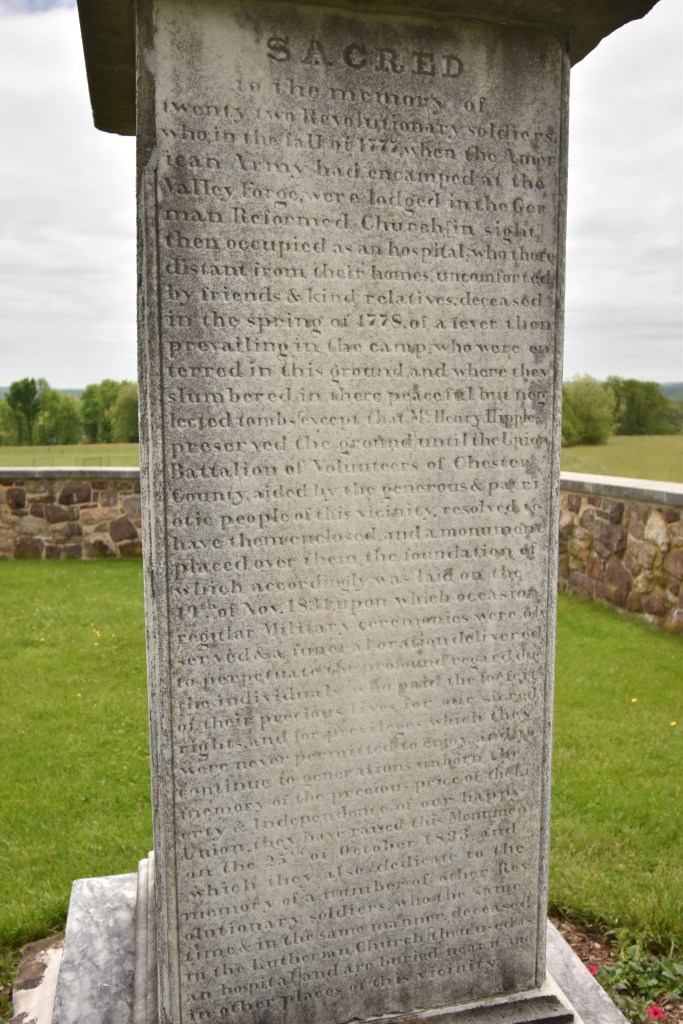 SACRED
to the memory of
twenty two Revolutionary soldiers,
who, in the fall of 1777, when the Amer
ican Army had encamped at the
Valley Forge, were lodged in the Ger
man Reformed Church, (in sight,)
then occupied as an hospital, who there
distant from their homes, uncomforted
by friends & kind relatives, deceased
in the spring of 1778, of a fever then
prevailing in the camp, who were en
terred in this ground, and where they
slumbered in there peaceful but neg
lected tombs, (except that Mr. Henry Hipple,
preserved the ground) until the Union
Battalion of Volunteers of Chester
County, aided by the generous & patri
otic people of this vicinity, resolved to
have them enclosed, and a monument
placed over them, the foundation of
which accordingly was laid on the
19th of Nov. 1831, upon which occasion
regular Military ceremonies were ob
served & a funeral oration delivered
to perpetuate the profound regard due
the individuals who paid the forfeit
of their precious lives for our sacred
rights, and for previleges which they
were never permitted to enjoy, and to
continue to generations unborn the
memory of the precious price of their lib
erty & Independence of our happy
Union, they have raised this Monument
on the 25th of October 1833, and
which they also dedicate to the
memory of a number of other Rev
olutionary soldiers, who the same
time & in the same manner, deceased
in the Lutheran Church, (then used as
an hospital) and are buried near it and
in other places of this vicinity.